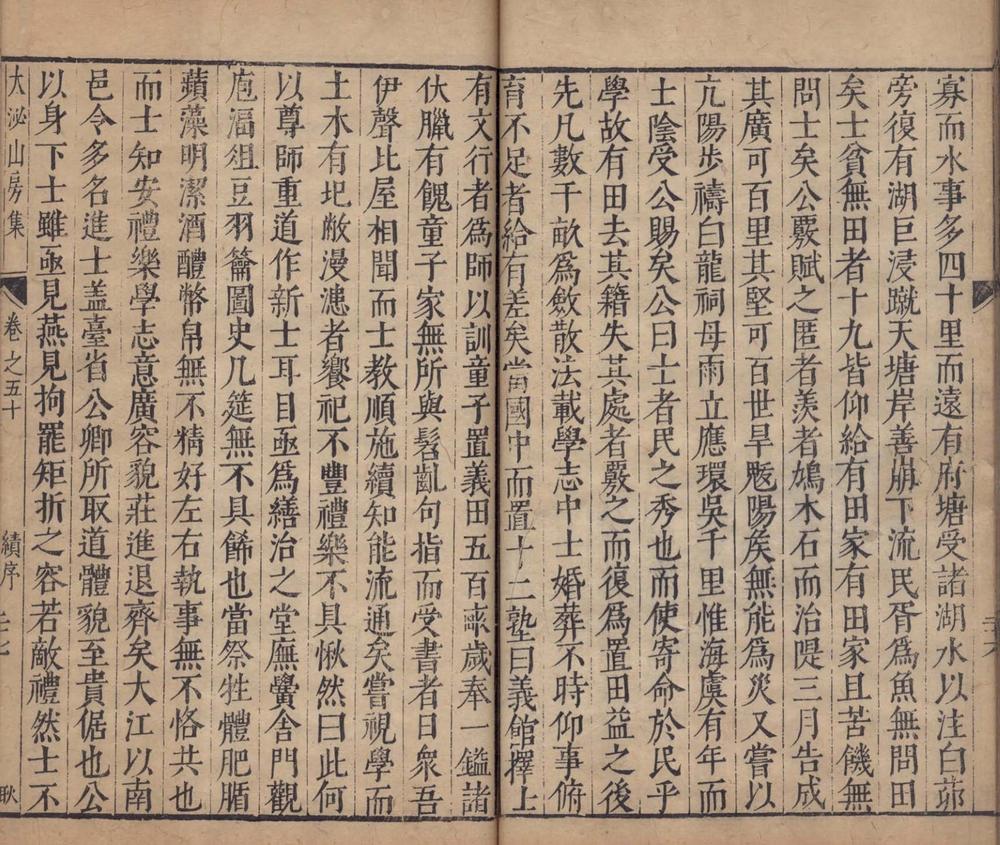 寡而水事多四十里而遠有府塘受諸湖水以注白茆
旁復有湖巨浸蹴天塘岸善崩下流民胥爲魚無問田
矣士貧無田者十九皆仰給有田家有田家且苦饑無
問士矣公覈賦之匿者羡者鳩木石而治隄三月告成
其廣可百里其堅可百世旱魃陽侯無能爲災又嘗以
亢陽步禱白龍祠毋雨立應環吳千里惟海虞有年而
士陰受公賜矣公曰士者民之秀也而使寄命於民乎
學故有田去其籍失其處者覈之而復爲置田益之後
先凡數千畝爲斂散法載學志中士婚葬不時仰事俯
育不足者給有差矣當國中而置十二塾曰義館擇上
有文行者爲師以訓童子置義田五百畝歲奉一鎰諸
伏臘有餽童子家無所與髫齔句指而受書者日衆吾
伊聲比屋相聞而士教順施續知能流通矣嘗視學而
土木有圮敝漫漶者饗祀不豐禮樂不具愀然曰此何
以尊師重道作新士耳目亟爲繕治之堂廡黌舍門觀
庖湢俎豆羽籥圖史几筵無不具餙也當祭牲體肥腯
蘋藻明潔酒醴幣帛無不精好左右執事無不恪共也
而士知安禮樂學志意廣容貌莊進退齊矣大江以南
邑令多名進士盖臺省公卿所取道體貌至貴倨也公
以身下士雖亟見燕見拘罷矩折之容若敵禮然士不
大泌山房集 卷之五十 績序 二十七 耿